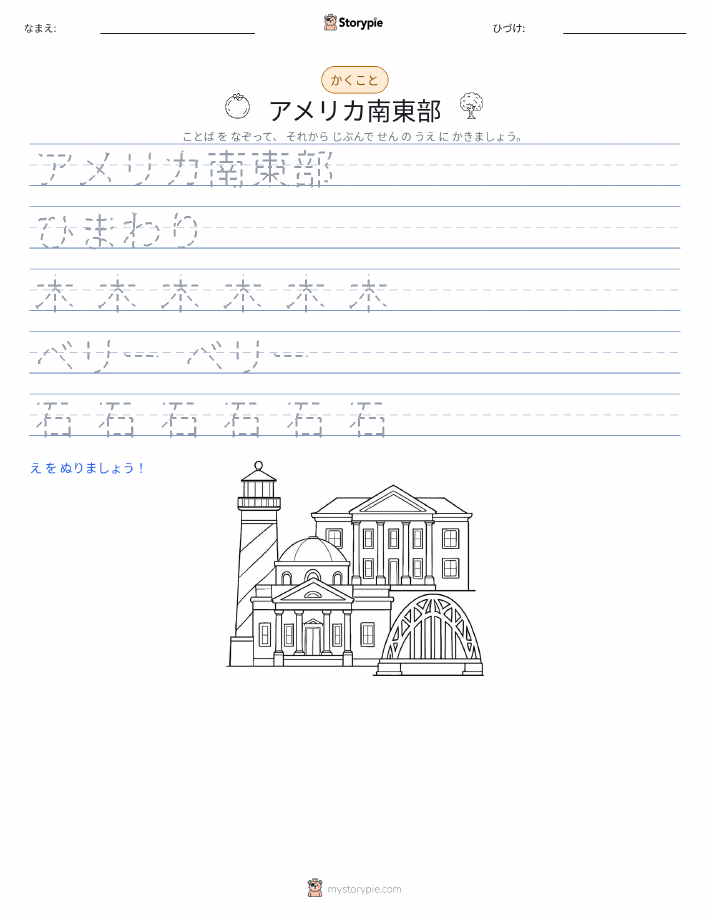 なまえ:
Storypie
ひづけ:
かくこと
アメリカ南東部
ことば を なぞって、 それから じぶんで せん の うえ に かきましょう。
アメリカ南東部
ひまわり
木 木 木 木 木 木
ベリー ベリー
石 石 石 石 石 石
え を ぬりましょう！
mystorypie.com